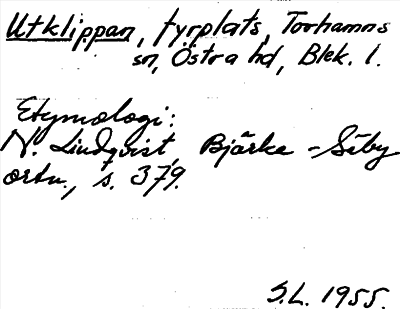 Utklippan, fyrplats, Torhamns
sn, Östra hd, Blek. l.
Etymologi:
N. Lindqvist, Bjärka-Säby
ortn., s. 379.
S.L. 1955.